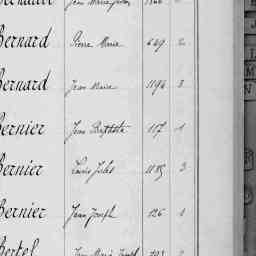 Bernard Pierre Marie 649 2
Bernard Jean Marie 1196 3
Bernier Jean Baptiste 117 1
Bernier Louis Jules 1185 3
Bernier Jean Joseph 126 1
Bertel Jean Marie Joseph